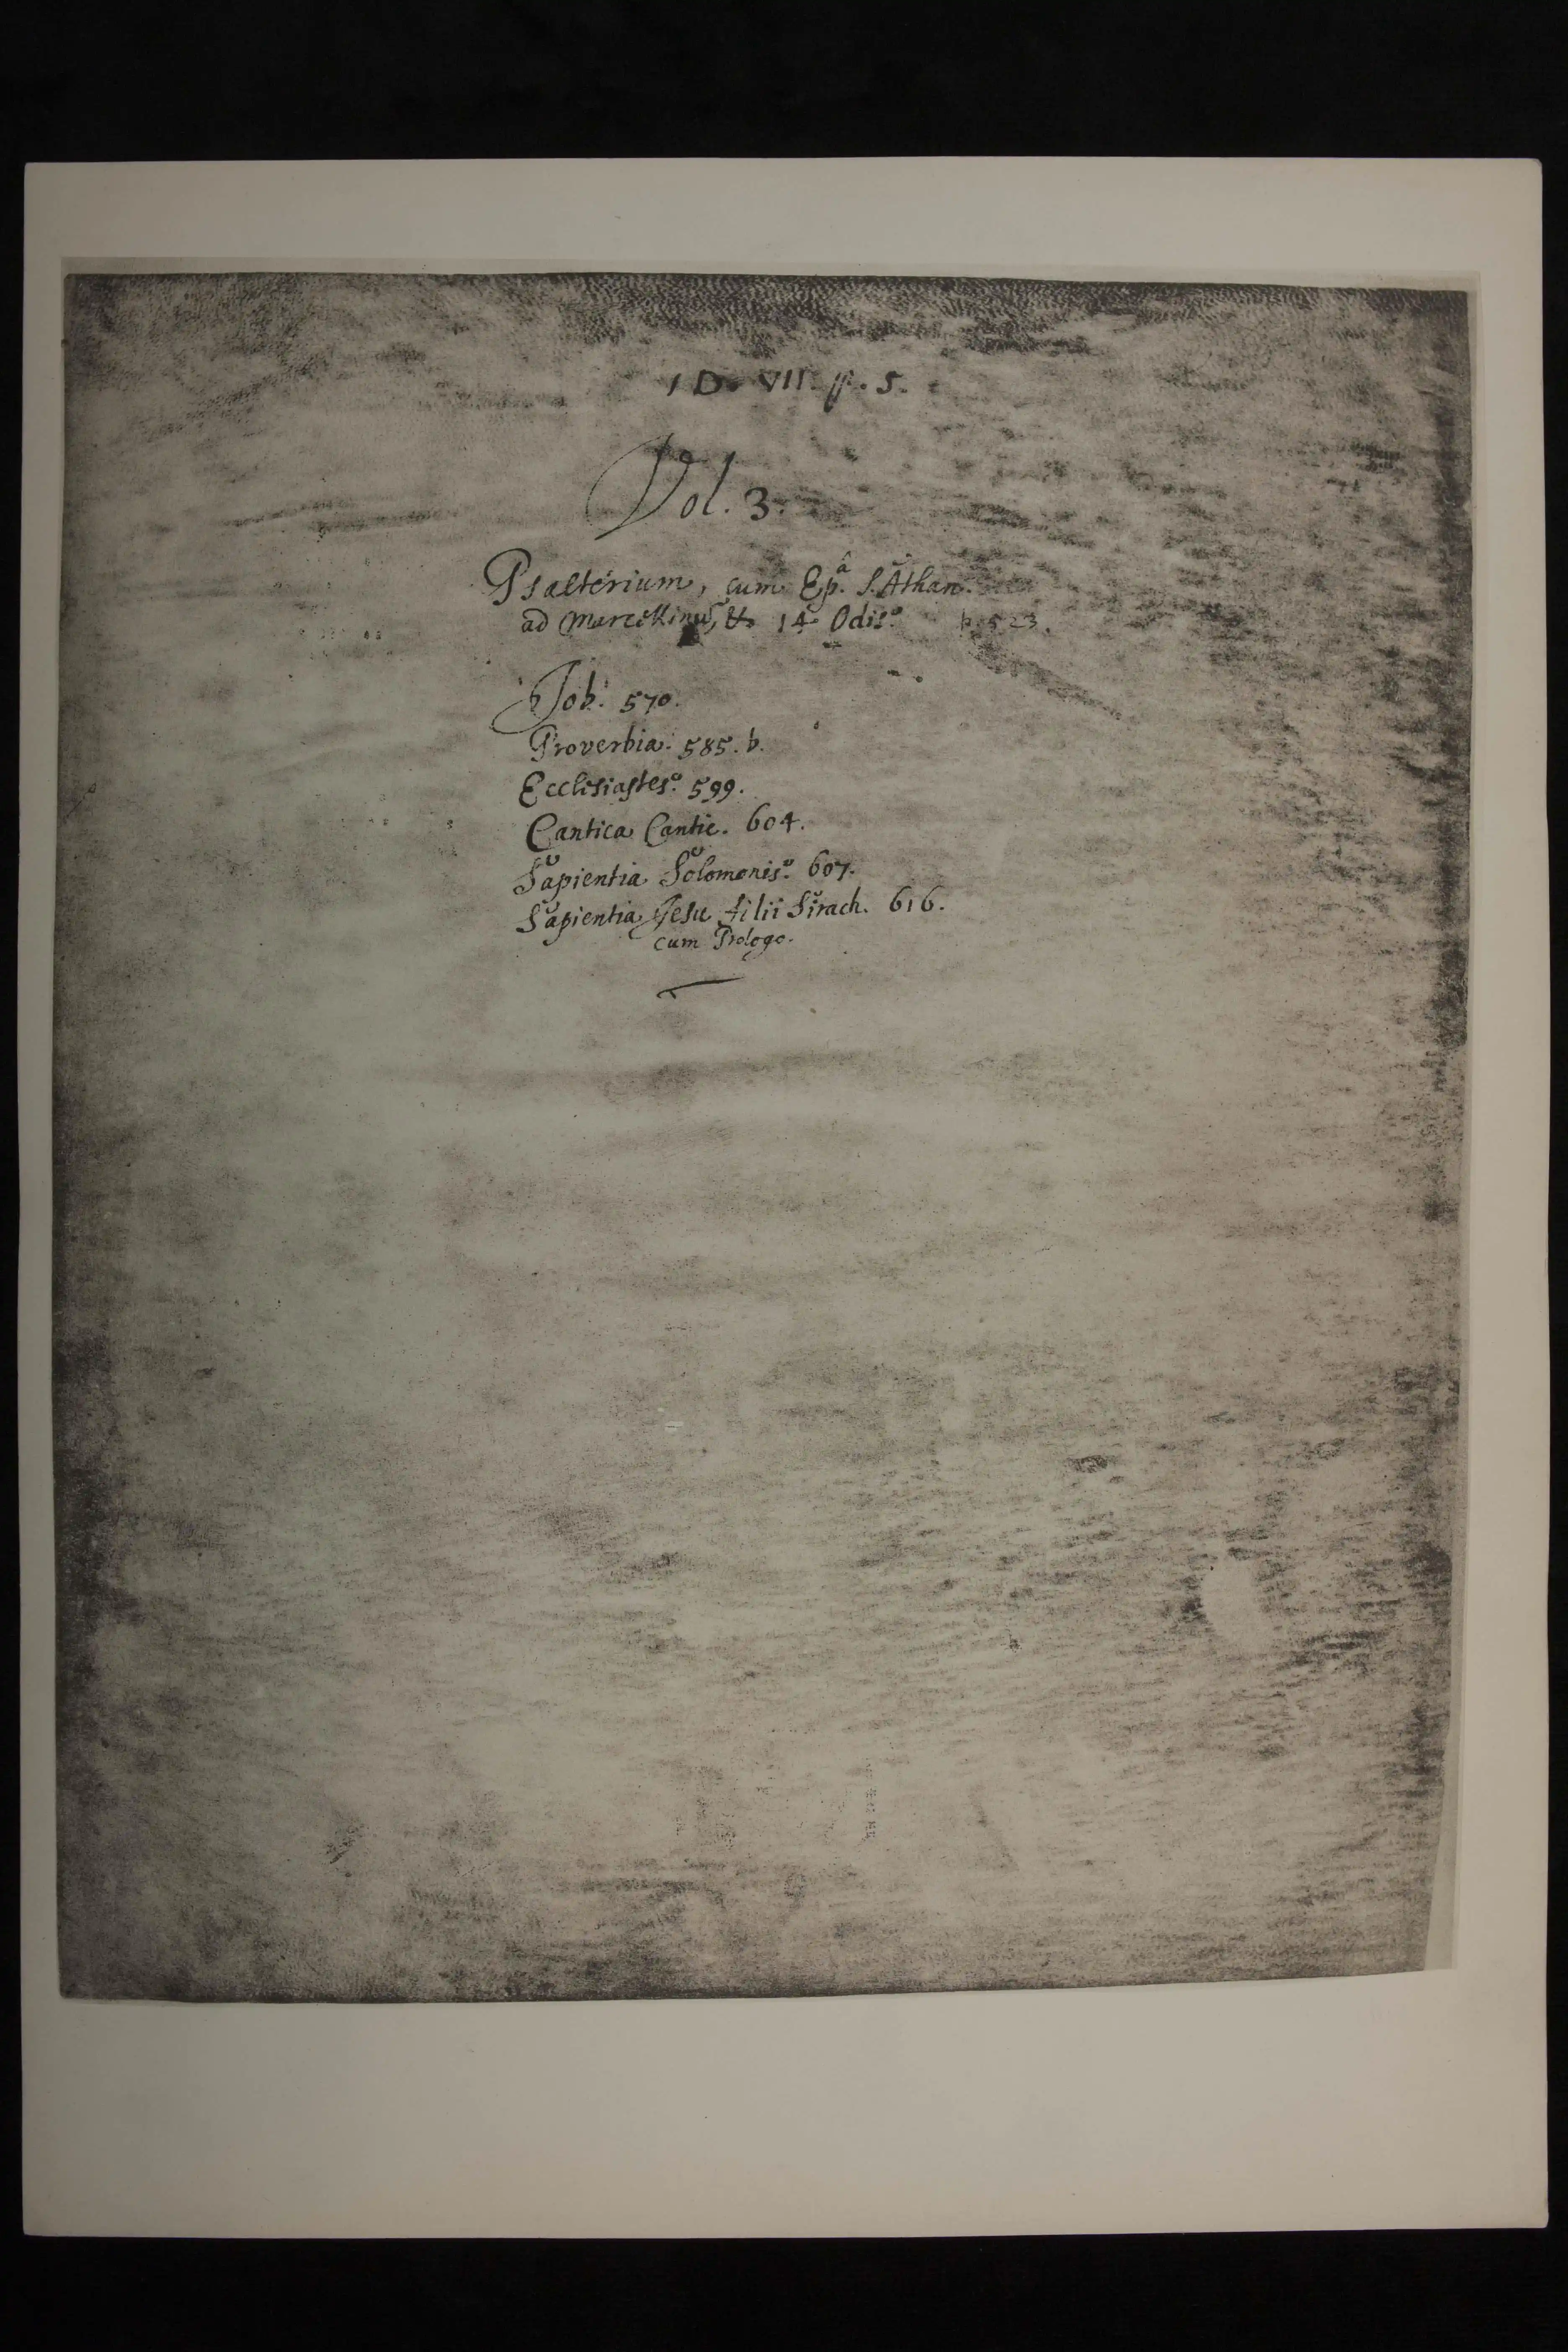 1 D. VII. p. 5.
Vol. 3.
Psalterium, cum Ep.ᵃ S. Athan.
ad Marcellinū, & 14 Odis. p. 523.
Job. 570.
Proverbia. 585. b.
Ecclesiastes. 599.
Cantica Cantic. 604.
Sapientia Solomonis. 607.
Sapientia Jesu filii Sirach. 616.
cum Prologo.